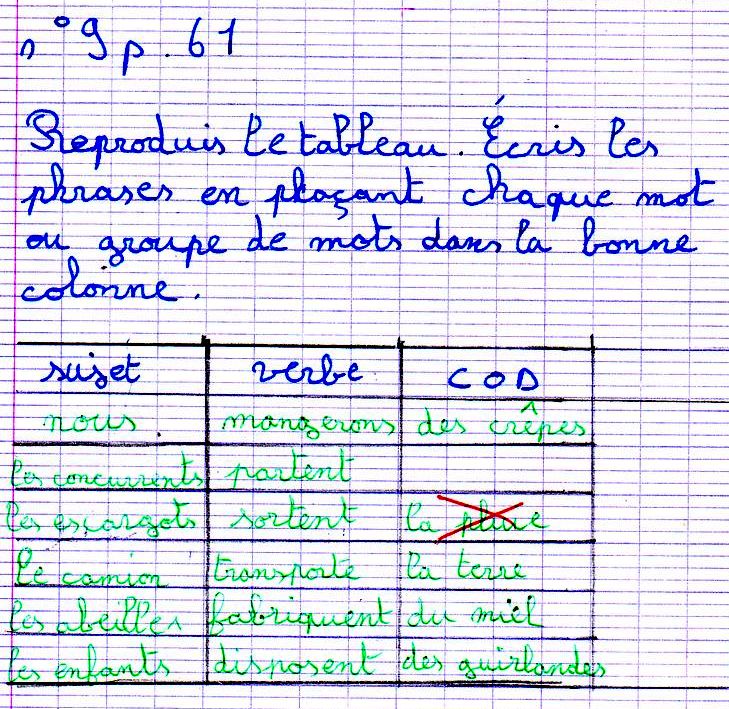 n°9 p. 61
Reproduis le tableau. Écris les
phrases en plaçant chaque mot
ou groupe de mots dans la bonne
colonne.
sujet verbe COD
nous. mangerons des crêpes
les concurrents partent
les escargots sortent la pluie
le camion transporte la terre
les abeilles fabriquent du miel
les enfants disposent des guirlandes